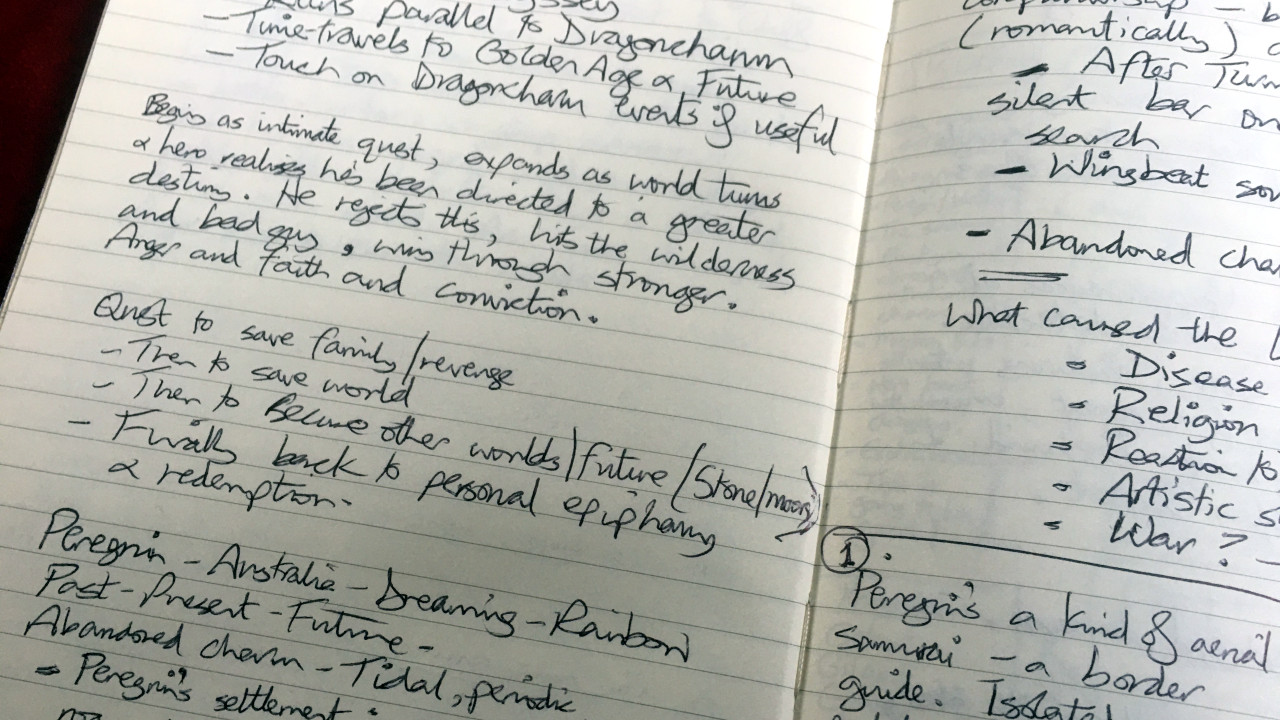 Runs parallel to Dragoncharm
- Time-travels to Golden Age & Future
- Touch on Dragoncharm events if useful
Begins as intimate quest, expands as world turns
& hero realises he's been directed to a greater
destiny. He rejects this, hits the wilderness
and bad guy, wins through stronger.
Anger and faith and conviction.
Quest to save family/revenge
- Then to save world
- Then to become other worlds/future (Stone/moors)
- Finally back to personal epiphany
& redemption.
Peregrin - Australia - Dreaming - Rainbow
Past - Present - Future -
Abandoned charm - Tidal, periodic
= Peregrin's settlement
(romantically)
- After Turn
silent bar on
search
- Wingbeat
- Abandoned
What caused the
= Disease
= Religion
= Reaction to
= Artistic
= War?
1.
Peregrin's a kind of aerial
samurai - a border
guide.